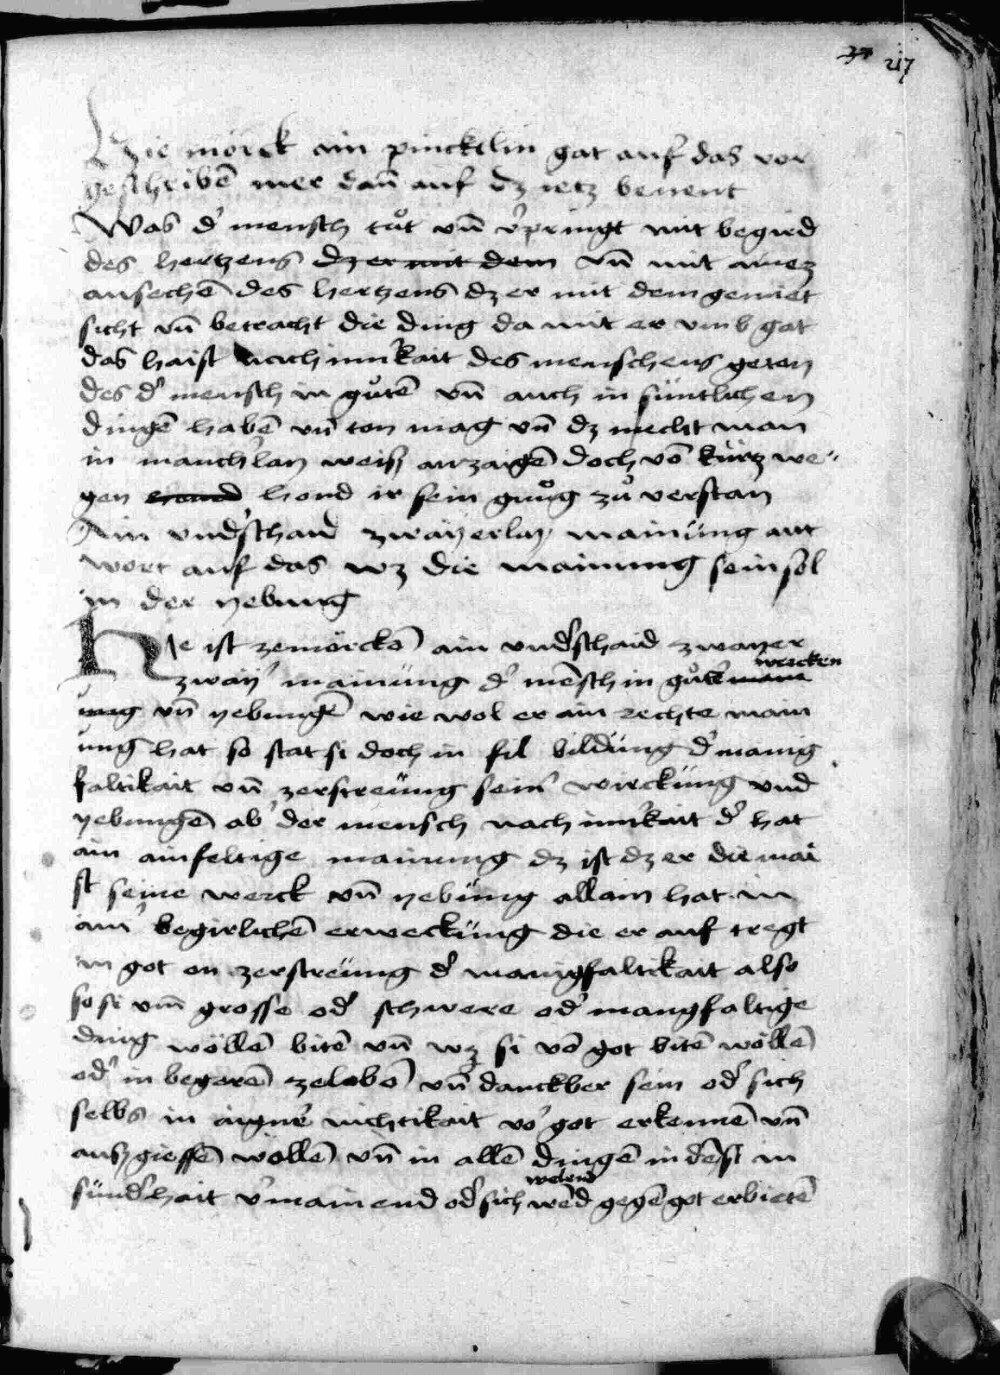 217
Hie mörck ain pincktlin gat auf das vor
geschribē mer dañ auf dz ietz benent
Was d' mensch tůt vñ v'pringt mit begird
des hertzens dz er mit dem vñ mit
ansechē des hertzens dz er mit dem gemiet
sicht vñ betracht die ding da mit er vmb gat
das haist nach inn'kait des menschens geton
des d' mensch in gůtē vñ auch in süntlichen
dingē habē vñ ton mag vñ dz mecht man
in manch'lay weiß anzaigē doch vō kürtz we"
gen hond ir sein gnůg zů verstan
Ain vnd'schaid zwayerlay mainung ant
wort auf das wz die mainung sein sol
in der yebung
Hie ist zemörckē ain vnd'schaid zwayer
wercken
zway' mainung d' mēsch in gůtē
ung vñ yebungē wie wol er ain rechte main
ung hat so stat si doch in fil bildung d' manig
faltikait vñ zerstreüng sein' wirckung vnd
yebungē ab' der mensch nach inn'kait d' hat
ain ainfeltige mainung dz ist dz er die mai
st seine werck vñ yebung allain hat in
ain' begirlichē erweckung die er auf tregt
in got on zerstreüng d' manigfaltikait also
so si vm grosse od' schwere od' mangfaltige
ding wöllē bitē vñ wz si vō got bitē wöllē
od' in begerē zelobē vñ danckber sein od' sich
selbs in aigner nichtikait vo' got erkennē vñ
außgiessē wöllē vñ in allē dingē in in
welend
sünd'hait v'mainend od' sich gegē got erbietē